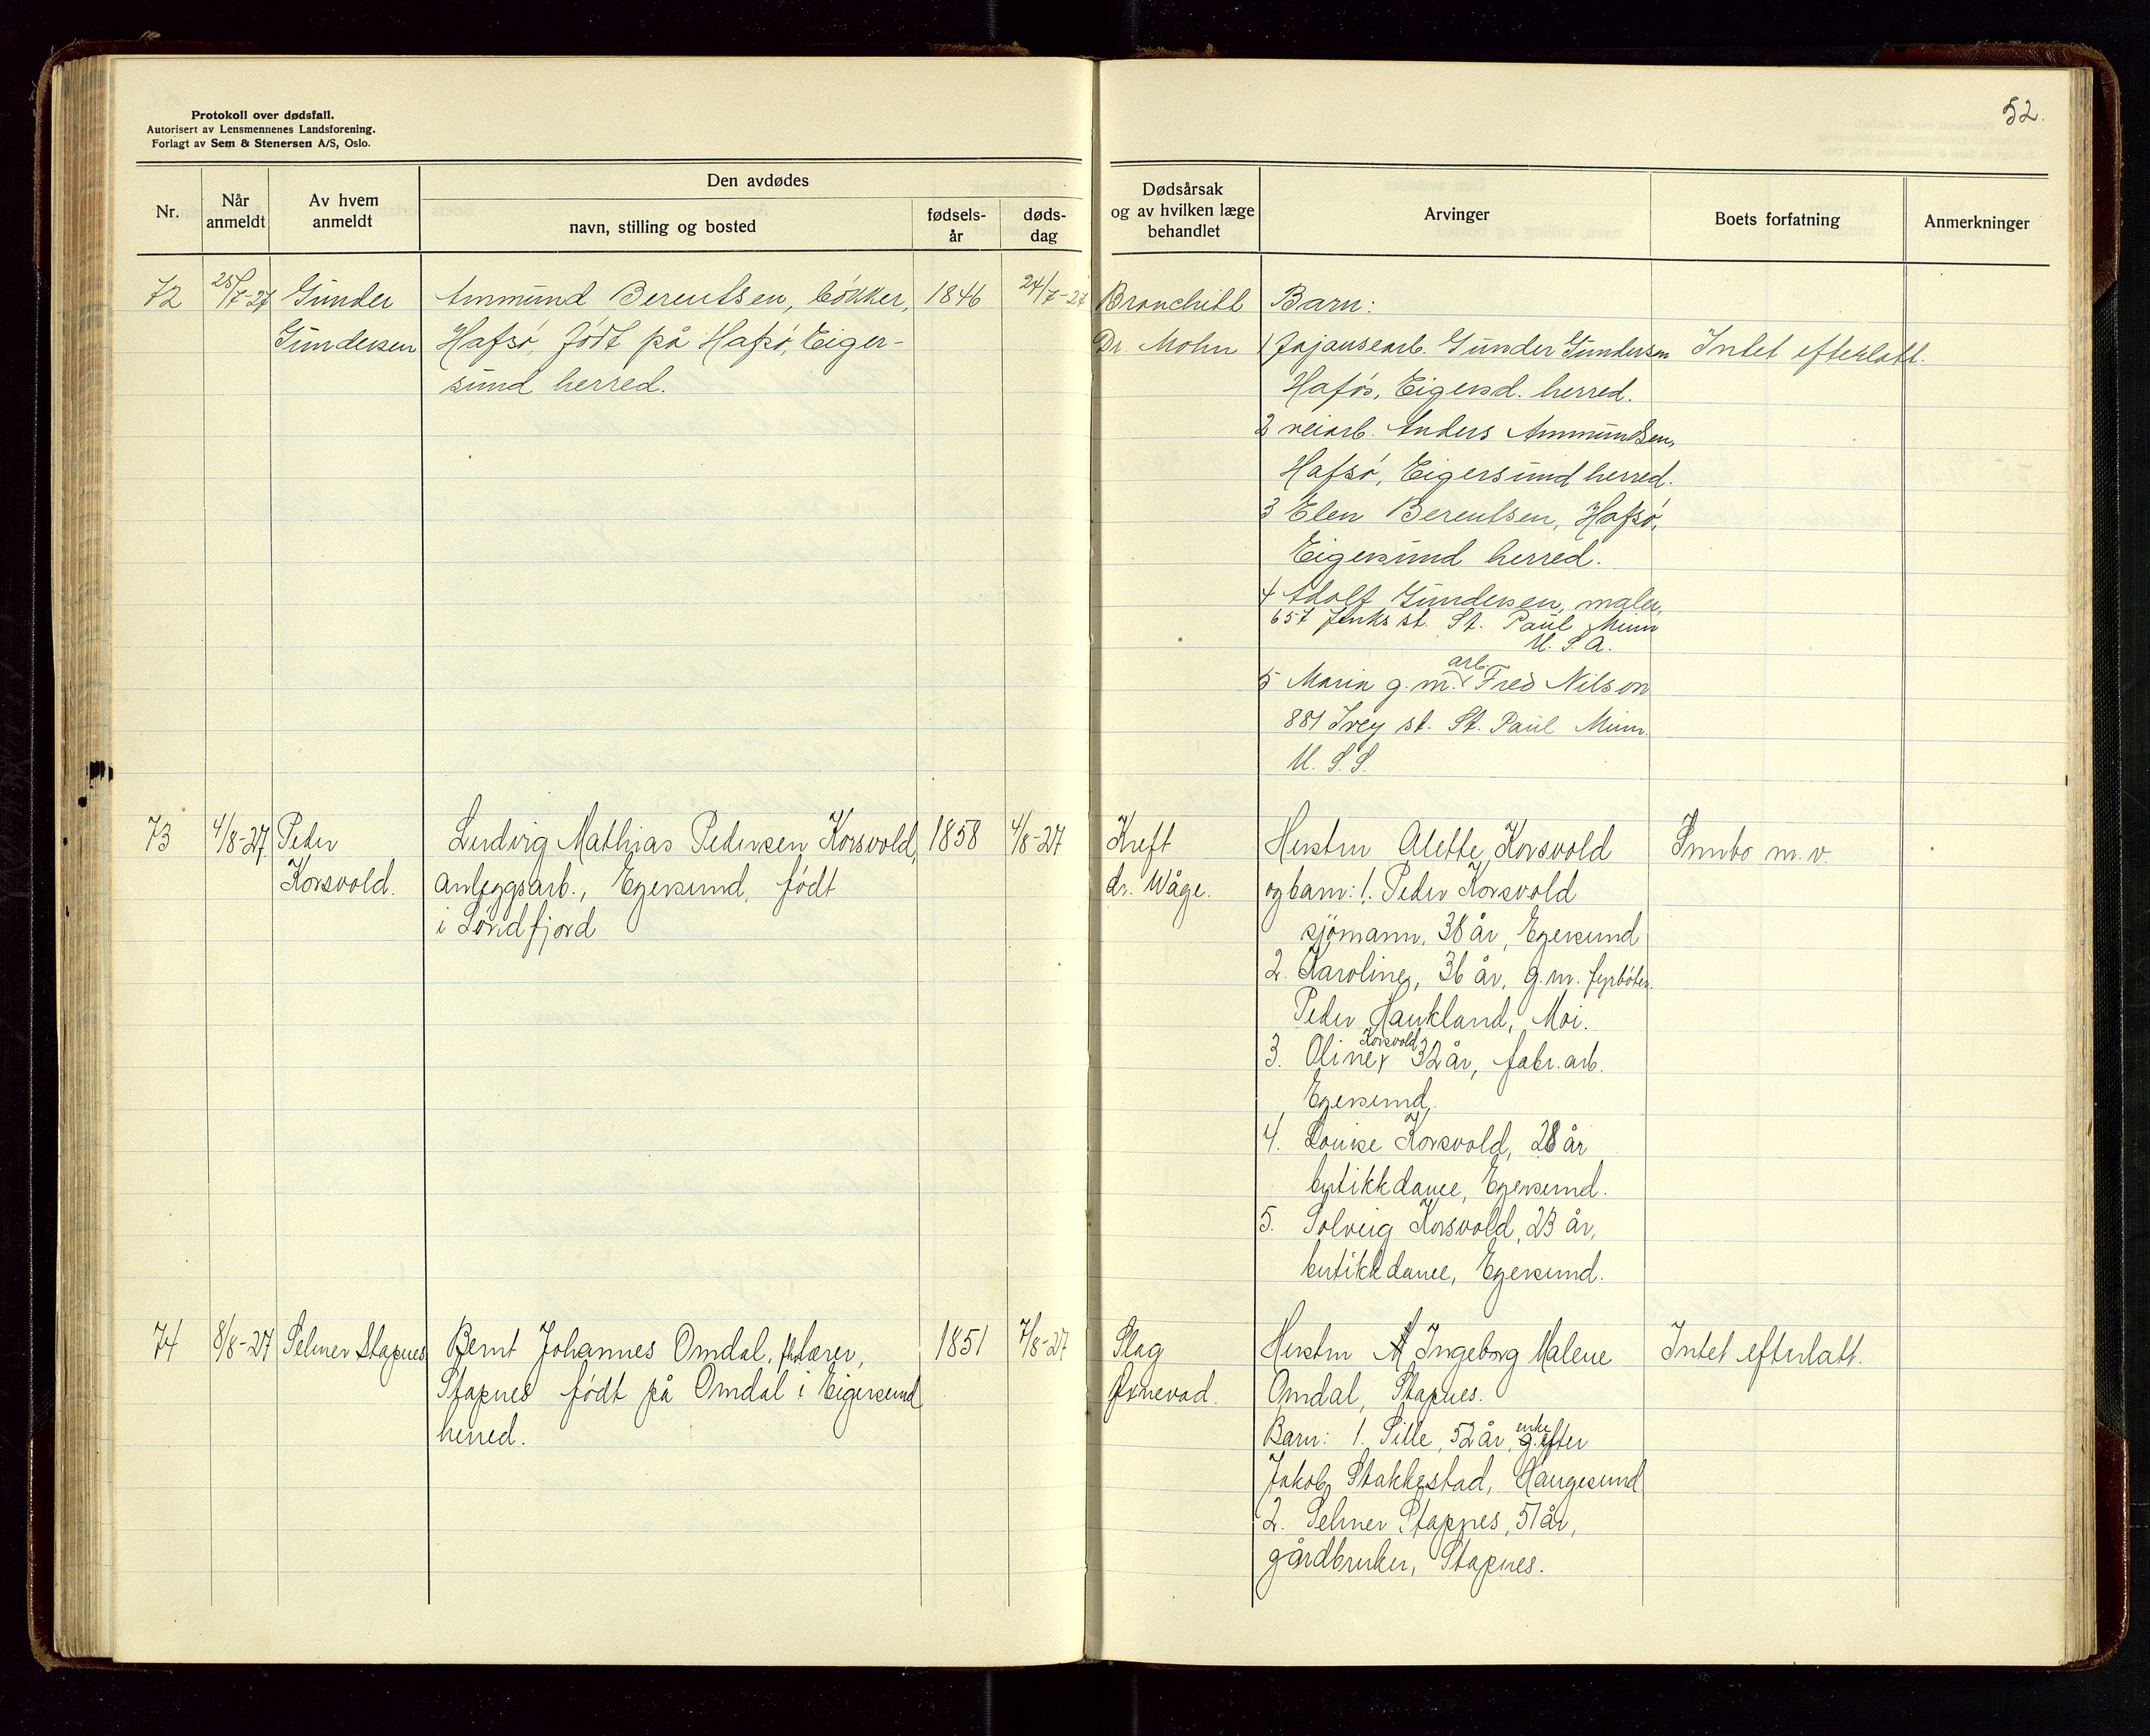 52.
Protokoll over dødsfall.
Autorisert av Lensmennenes Landsforening.
Forlagt av Sem & Stenersen A/S, Oslo.
Nr.
Når anmeldt
Av hvem anmeldt
Den avdødes
navn, stilling og bosted
fødsels-år
døds-dag
Dødsårsak og av hvilken læge behandlet
Arvinger
Boets forfatning
Anmerkninger
72
25/7-27
Gunder
Gundersen
Ammund Berentsen, bökker,
Hafsö, födt på Hafsö, Eiger-
sund herred.
1846
24/7-27
Bronchitt
Dr. Mohn
Barn:
1 fajansearb. Gunder Gundersen
Hafsö, Eigersd. herred.
2 veiarb. Anders Ammundsen,
Hafsö, Eigersund herred.
3 Elen Berentsen, Hafsö,
Eigersund herred.
4 Adolf Gundersen, maler,
657 Jenks st. St. Paul Minn
U. S. A.
5 Maria g. m. arb. Fred Nilson
881 Ivey st. St. Paul Minn.
U. S. S.
Intet efterlatt.
73
4/8-27
Peder
Korsvold.
Ludvig Mathias Pedersen Korsvold,
anleggsarb., Egersund, födt
i Söndfjord
1858
4/8-27
Kreft
dr. Wåge.
Hustru Alette Korsvold
og barn: 1. Peder Korsvold
sjömann, 38 år, Egersund
2. Karoline, 36 år, g. m. fyrböter
Peder Haukland, Moi.
3. Oline Korsvold 32 år, fabr. arb.
Egersund.
4. Louise Korsvold, 28 år
butikkdame, Egersund.
5. Solveig Korsvold, 23 år,
butikkdame, Egersund.
Innbo m. v.
74
8/8-27
Selmer Stapnes
Bernt Johannes Omdal,
Stapnes födt på Omdal i Eigersund
herred.
1851
7/8-27
Slag
Öxnevad.
Hustru Ingeborg Malene
Omdal, Stapnes.
Barn: 1. Sille, 52 år, enke efter
Jakob Stakkestad, Haugesund
2. Selmer Stapnes, 51 år,
gårdbruker, Stapnes.
Intet efterlatt.